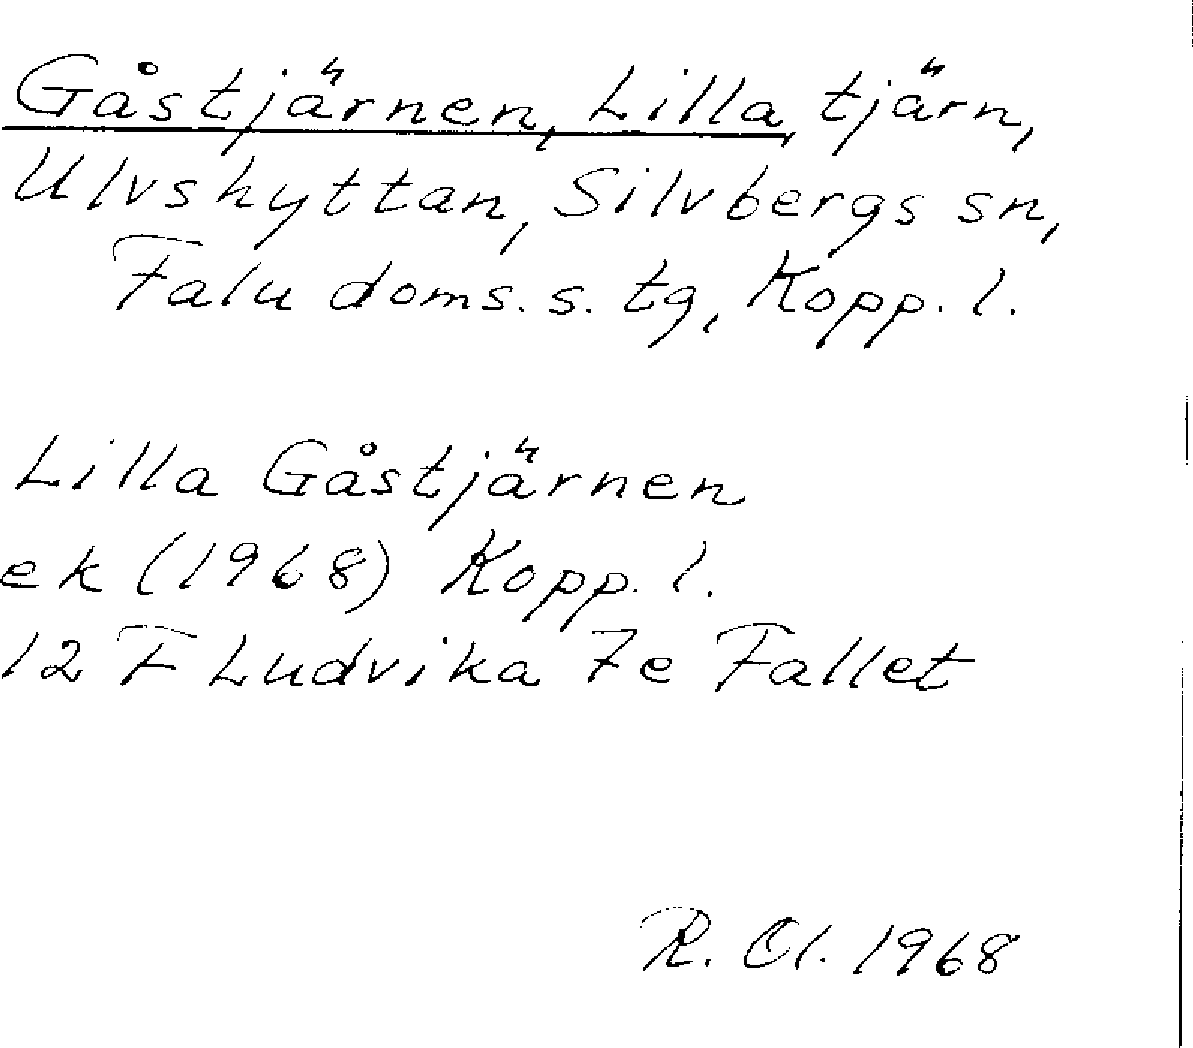 Gåstjärnen, Lilla, tjärn,
Ulvshyttan, Silvbergs sn,
Falu doms. s. tg, Kopp. l.
Lilla Gåstjärnen
ek (1968) Kopp. l.
12 F Ludvika 7e Fallet
R. Ol. 1968